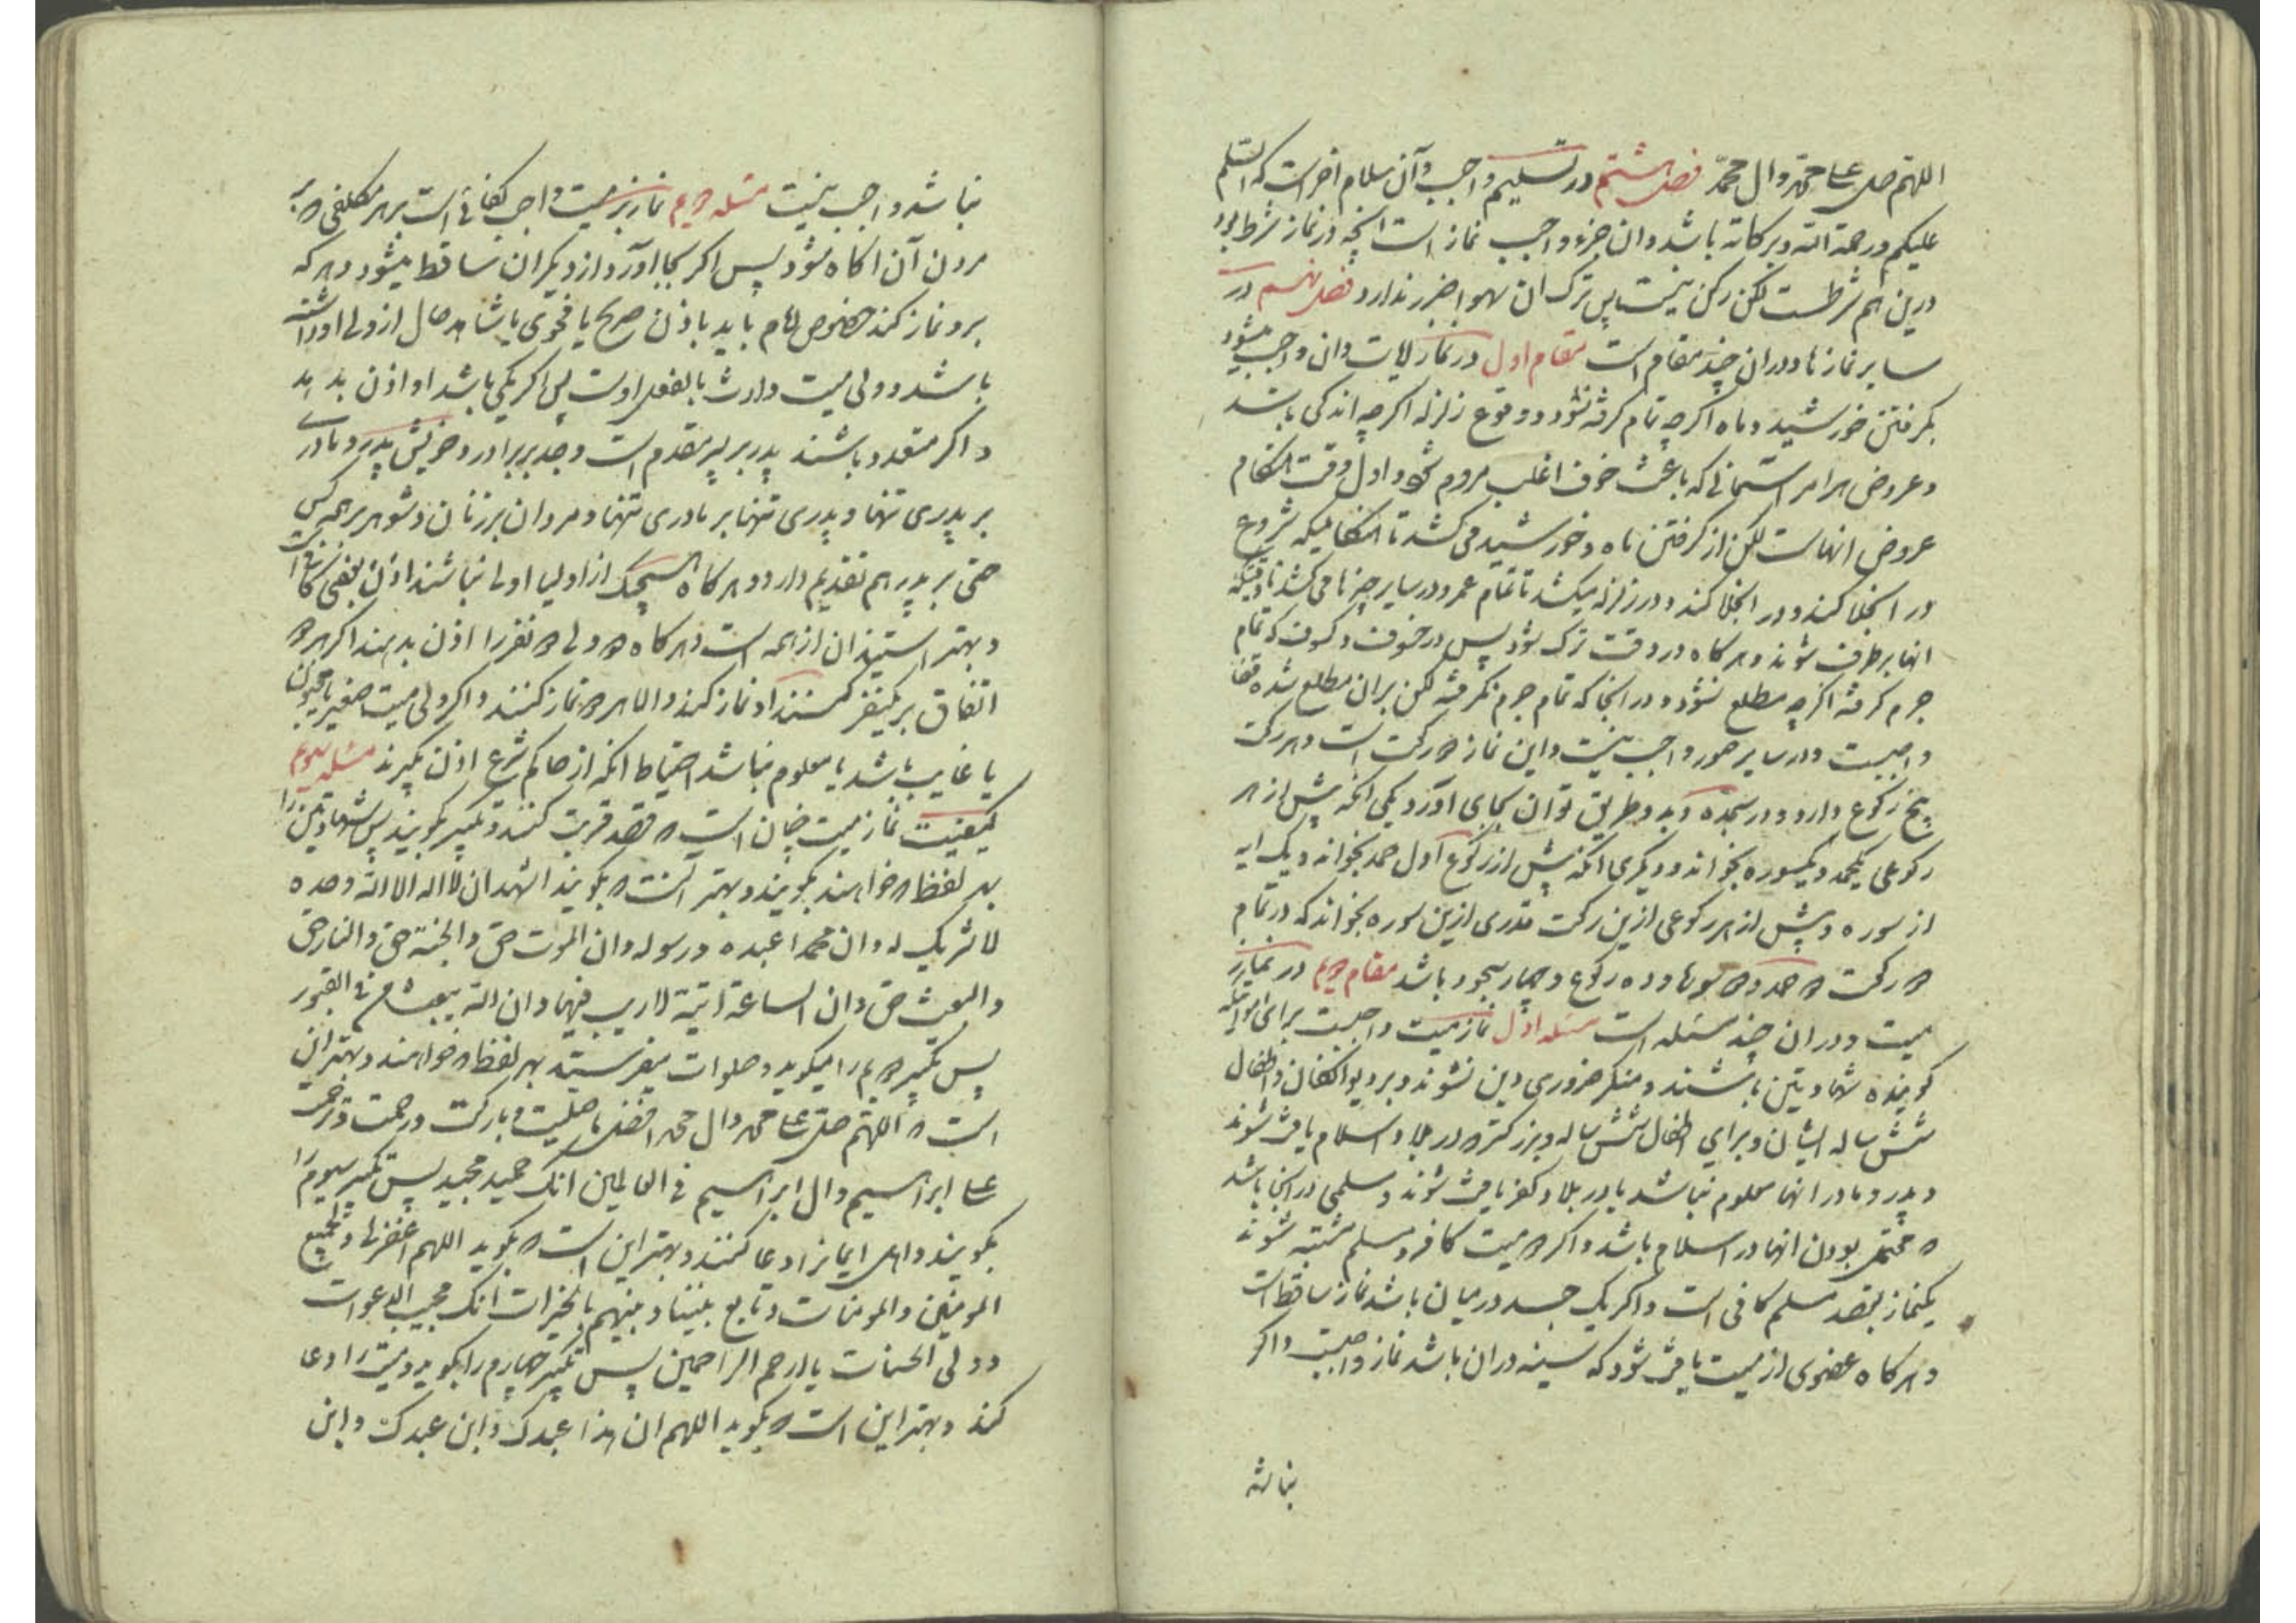 اللهم صل علی محمد وال محمد فصل هشتم در تسلیم واجب و آن سلام اخر است که السلم
علیکم ورحمة الله وبرکاته باشد وان جزء واجب نماز است انچه در نماز شرط بود
درین هم شرطست لکن رکن نیست پس ترک ان سهوا ضرر ندارد فصل نهم در
سایر نمازها ودران چند مقام است مقام اول در نماز ایات وان واجب میشود
بگرفتن خورشید وماه اگرچه تمام گرفته نشود ووقوع زلزله اگرچه اندکی باشد
وعروض هر امر آسمانی که باعث خوف اغلب مردم شود واول وقت هنگام
عروض انهاست لکن از گرفتن ماه وخورشید می کشد تا هنگامیکه شروع
در انجلا کند ودر انجلا کند ودر زلزله میکشد تا تمام عمر ودر سایر چیزها می کشد تا وقتیکه
انها برطرف شوند وهرگاه در وقت ترک شود پس در خسوف وکسوف که تمام
جرم گرفته اگرچه مطلع نشود ودر انجا که تمام جرم نگرفته لکن بران مطلع شده قضا
واجبست ودر سایر صور واجب نیست واین نماز ۲ رکعت است وهر رکعت
پنج رکوع دارد ودو سجده وبدو طریق توان بجای آورد یکی انکه پیش از هر
رکوعی یکحمد ویکسوره بخواند ودیگری انکه پیش از رکوع آول حمد بخواند ویک ایه
از سوره وپیش از هر رکوعی ازین رکعت قدری ازین سوره بخواند که در تمام
۲ رکعت ۲ حمد و۲ سوره وده رکوع وچهار سجود باشد مقام دویم در نماز
میت ودران چند مسئله است مسئله اول نماز میت واجبست برای امواتیکه
گوینده شهادتین باشند ومنکر ضروری دین نشوند وبر دیوانگان واطفال
شش ساله ایشان وبرای اطفال شش ساله وبزرگتر که در بلاد اسلام یافت شوند
وپدر ومادر انها معلوم نباشد یا در بلاد کفر یافت شوند ومسلمی در انجا باشد
که محتمل بودن انها در اسلام باشد واگر ۲ میت کافر ومسلم مشتبه شوند
یکنماز بقصد مسلم کافی است واگر یک جسد در میان باشد نماز ساقط است
وهرگاه عضوی از میت یافت شود که سینه دران باشد نماز واجبست واگر
نباشد
نباشد واجب نیست مسئله دویم نماز بر میت واجب کفائی است بر هر مکلفی که بر
مردن آن اگاه شود پس اگر بجا اورد از دیگران ساقط میشود وهر که
برو نماز کند خصوص امام باید باذن صریح یا فحوی یا شاهد حال از ولی او داشته
باشد وولی میت وارث بالفعل اوست پس اگر یکی باشد او اذن بدهد
واگر متعدد باشند پدر بر پسر مقدم است وجد بر برادر وخویش پدر ومادری
بر پدری تنها وپدری تنها بر مادری تنها ومردان بر زنان وشوهر بر همه کس
حتی بر پدر هم تقدیم دارد وهرگاه هیچیک از اولیا اولی نباشند اذن بعضی کافی است
وبهتر استیذان از همه است وهرگاه ۲ ولی ۲ نفر را اذن بدهند اگر هر ۲
اتفاق بر یکنفر کنند او نماز کند والا هر ۲ نماز کنند واگر ولی میت صغیر یا مجنون
یا غایب باشد یا معلوم نباشد احتیاط انکه از حاکم شرع اذن بگیرند مسئله سیوم
کیفیت نماز میت چنان است که قصد قربت کنند وتکبیر گویند پس شهادتین را
بهر لفظ که خواهند بگویند وبهتر آنست که بگویند اشهد ان لا اله الا الله وحده
لا شریک له وان محمدا عبده ورسوله وان الموت حق والجنة حق والنار حق
والبعث حق وان الساعة اتیة لا ریب فیها وان الله یبعث من فی القبور
پس تکبیر دویم را میگوید وصلوات میفرستد بهر لفظ که خواهند وبهتر ان
است که اللهم صل علی محمد وال محمد افضل ما صلیت وبارکت ورحمت وترحمت
علی ابراهیم وال ابراهیم فی العالمین انک حمید مجید پس تکبیر سیوم را
بگویند واهل ایمانرا دعا کنند وبهتر این است که بگوید اللهم اغفر لنا ولجمیع
المومنین والمومنات وتابع بیننا وبینهم بالخیرات انک مجیب الدعوات
وولی الحسنات یا ارحم الراحمین پس تکبیر چهارم را بگوید ومیت را دعا
کند وبهتر این است که بگوید اللهم ان هذا عبدک وابن عبدک وابن